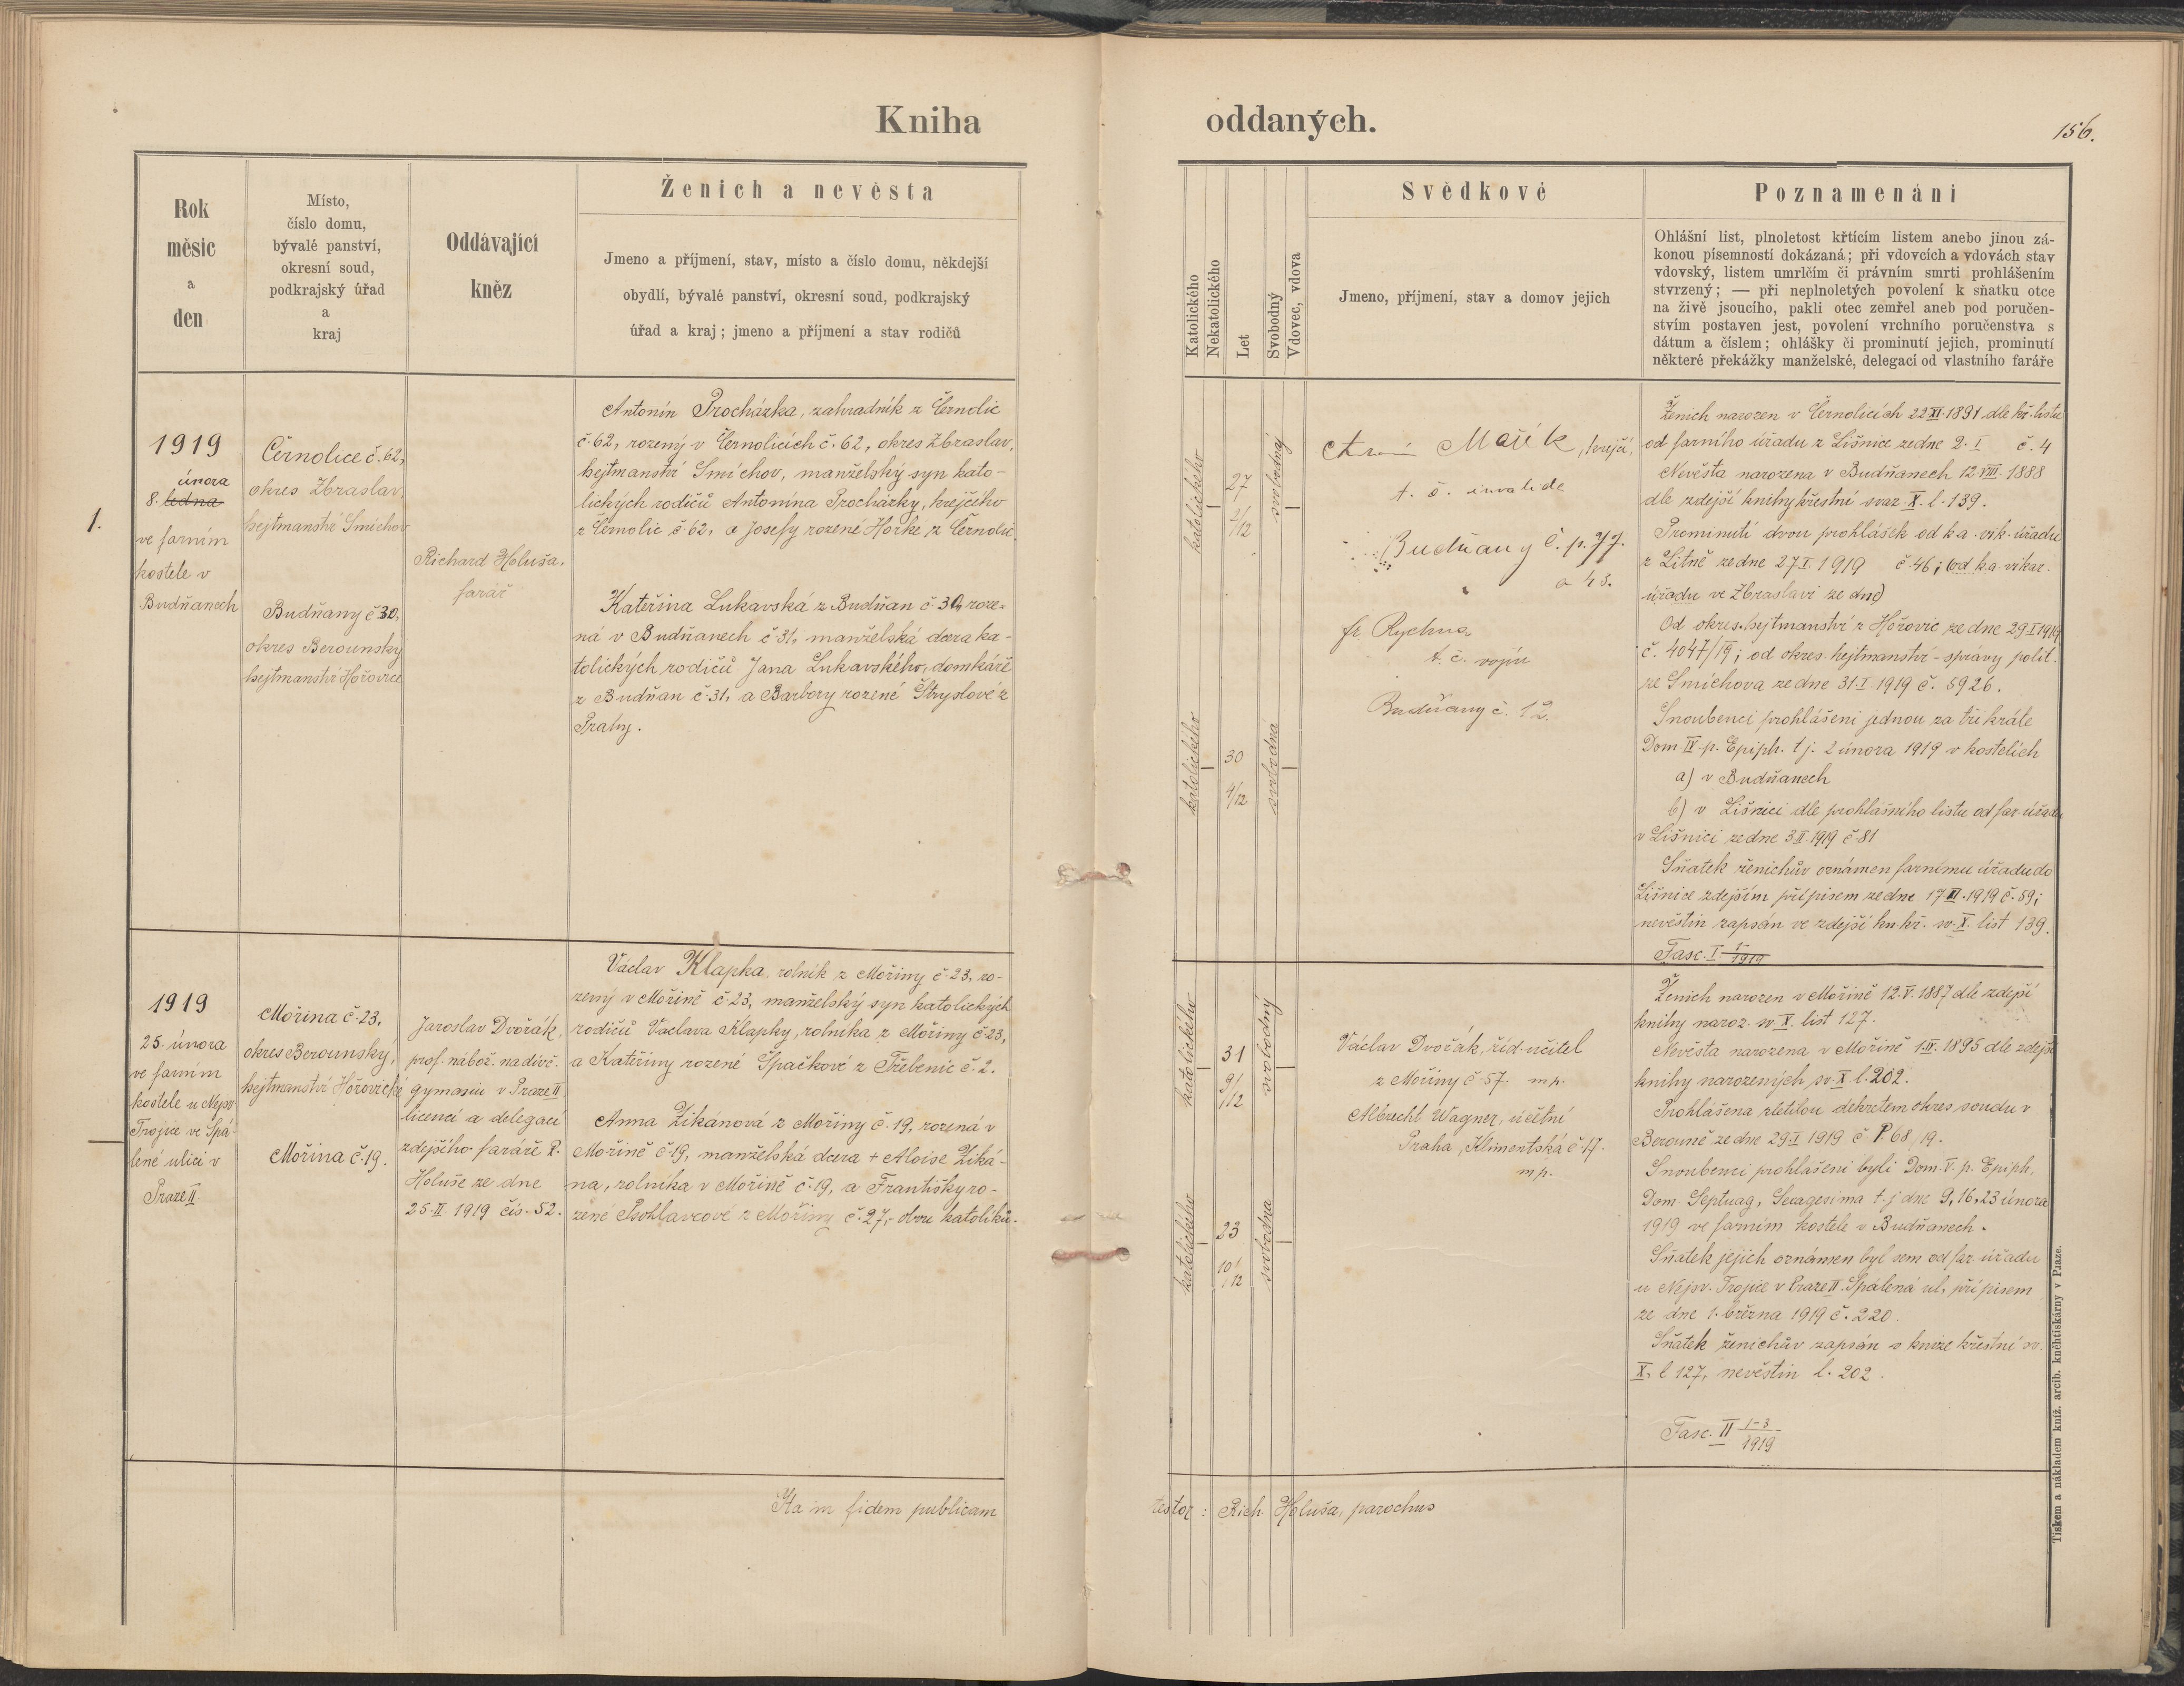 Kniha
oddaných.
156.
Rok
měsíc
a
den
Místo,
číslo domu,
bývalé panství,
okresní soud,
podkrajský úřad
a
kraj
Oddávající
kněz
Ženich a nevěsta
Jmeno a příjmení, stav, místo a číslo domu, někdejší
obydlí, bývalé panství, okresní soud, podkrajský
úřad a kraj; jmeno a příjmení a stav rodičů
Katolického
Nekatolického
Let
Svobodný
Vdovec, vdova
Svědkové
Jmeno, příjmení, stav a domov jejich
Poznamenání
Ohlášní list, plnoletost křtícím listem anebo jinou zá-
konou písemností dokázaná; při vdovcích a vdovách stav
vdovský, listem umrlčím či právním smrti prohlášením
stvrzený; — při neplnoletých povolení k sňatku otce
na živě jsoucího, pakli otec zemřel aneb pod poručen-
stvím postaven jest, povolení vrchního poručenstva s
dátum a číslem; ohlášky či prominutí jejich, prominutí
některé překážky manželské, delegací od vlastního faráře
1.
1919
února
8. ledna
ve farním
kostele v
Budňanech
Černolice č. 62,
okres Zbraslav,
hejtmanství Smíchov
Budňany č 30,
okres Berounský
hejtmanství Hořovice
Richard Holuša,
farář
Antonín Procházka, zahradník z Černolic
č. 62, rozený v Černolicích č. 62, okres Zbraslav,
hejtmanství Smíchov, manželský syn kato-
lických rodičů Antonína Procházky, krejčího
z Černolic č 62, a Josefy rozené Horké z Černolic.
Kateřina Lukavská z Budňan č. 30, roze-
ná v Budňanech č 31, manželská dcera ka-
tolických rodičů Jana Lukavského, domkáře
z Budňan č. 31, a Barbory rozené Štryslové z
Prahy.
katolického
27
2/12
svobodný
katolického
30
4/12
svobodna
Mařík, krejčí,
t. č. invalida
Budňany č. p. 77.
a 43.
fr. Rychna
t. č. vojín
Budňany č. 12.
Ženich narozen v Černolicích 22 XI. 1891 dle kř. listu
od farního úřadu z Lišnice ze dne 2. I č. 4
Nevěsta narozena v Budňanech 12. VIII. 1888
dle zdejší knihy křestní svaz. X. l. 139.
Prominutí dvou prohlášek od k. a. vik. úřadu
z Litně ze dne 27. I. 1919 č. 46; (od k. a. vikar.
úřadu ve Zbraslavi ze dne)
Od okres. hejtmanství z Hořovic ze dne 29. I 1919
č. 4047/19; od okres. hejtmanství - správy polit.
ze Smíchova ze dne 31. I 1919 č. 5926.
Snoubenci prohlášeni jednou za třikráte
Dom. IV. p. Epiph. t j. 2 února 1919 v kostelích
a) v Budňanech
b) v Lišnici dle prohlášního listu od far. úřadu
v Lišnici ze dne 3 II. 1919 č 81
Sňatek ženichův oznámen farnímu úřadu do
Lišnice zdejším přípisem ze dne 17 II. 1919 č. 59;
nevěstin zapsán ve zdejší kn. kř. sv. X. list 139.
Fasc. I 1/1919
1919
25. února
ve farním
kostele u Nejsv.
Trojice ve Spá-
lené ulici v
Praze II.
Mořina č. 23,
okres Berounský,
hejtmanství Hořovické
Mořina č. 19.
Jaroslav Dvořák,
prof. nábož. na dívč.
gymasiu v Praze II,
licencí a delegací
zdejšího faráře R.
Holuše ze dne
25. II 1919 čís. 52.
Václav Klapka, rolník z Mořiny č. 23, ro-
zený v Mořině č 23, manželský syn katolických
rodičů Václava Klapky, rolníka z Mořiny č 23,
a Kateřiny rozené Špačkové z Třebenic č. 2.
Anna Zikánová z Mořiny č. 19, rozená v
Mořině č 19, manželská dcera + Aloise Ziká-
na, rolníka v Mořině č. 19, a Františky ro-
zené Psohlavcové z Mořiny č. 27, - obou katolíků.
katolického
31
9/12
svobodný
katolického
23
10/12
svobodna
Václav Dvořák, říd. učitel
z Mořiny č 57. mp.
Albrecht Wagner, účetní
Praha, Klimentská č 17.
mp.
Ženich narozen v Mořině 12. V. 1887 dle zdejší
knihy naroz. sv. X. list 127.
Nevěsta narozena v Mořině 1. IV. 1895 dle zdejší
knihy narozených sv. X l. 202.
Prohlášena zletilou dekretem okres. soudu v
Berouně ze dne 29. I 1919 č P. 68/19.
Snoubenci prohlášeni byli Dom. V. p. Epiph,
Dom. Septuag, Sexagesima t. j dne 9, 16, 23 února
1919 ve farním kostele v Budňanech.
Sňatek jejich oznámen byl sem od far. úřadu
u Nejsv. Trojice v Praze II. Spálená ul, přípisem
ze dne 1. března 1919 č. 220.
Sňatek ženichův zapsán v knize křestní sv.
X, l 127, nevěstin l. 202.
Fasc. II 1-3/1919
Ita in fidem publicam
testor: Rich Holuša, parochus
Tiskem a nákladem kníž. arcib. kněhtiskárny v Praze.